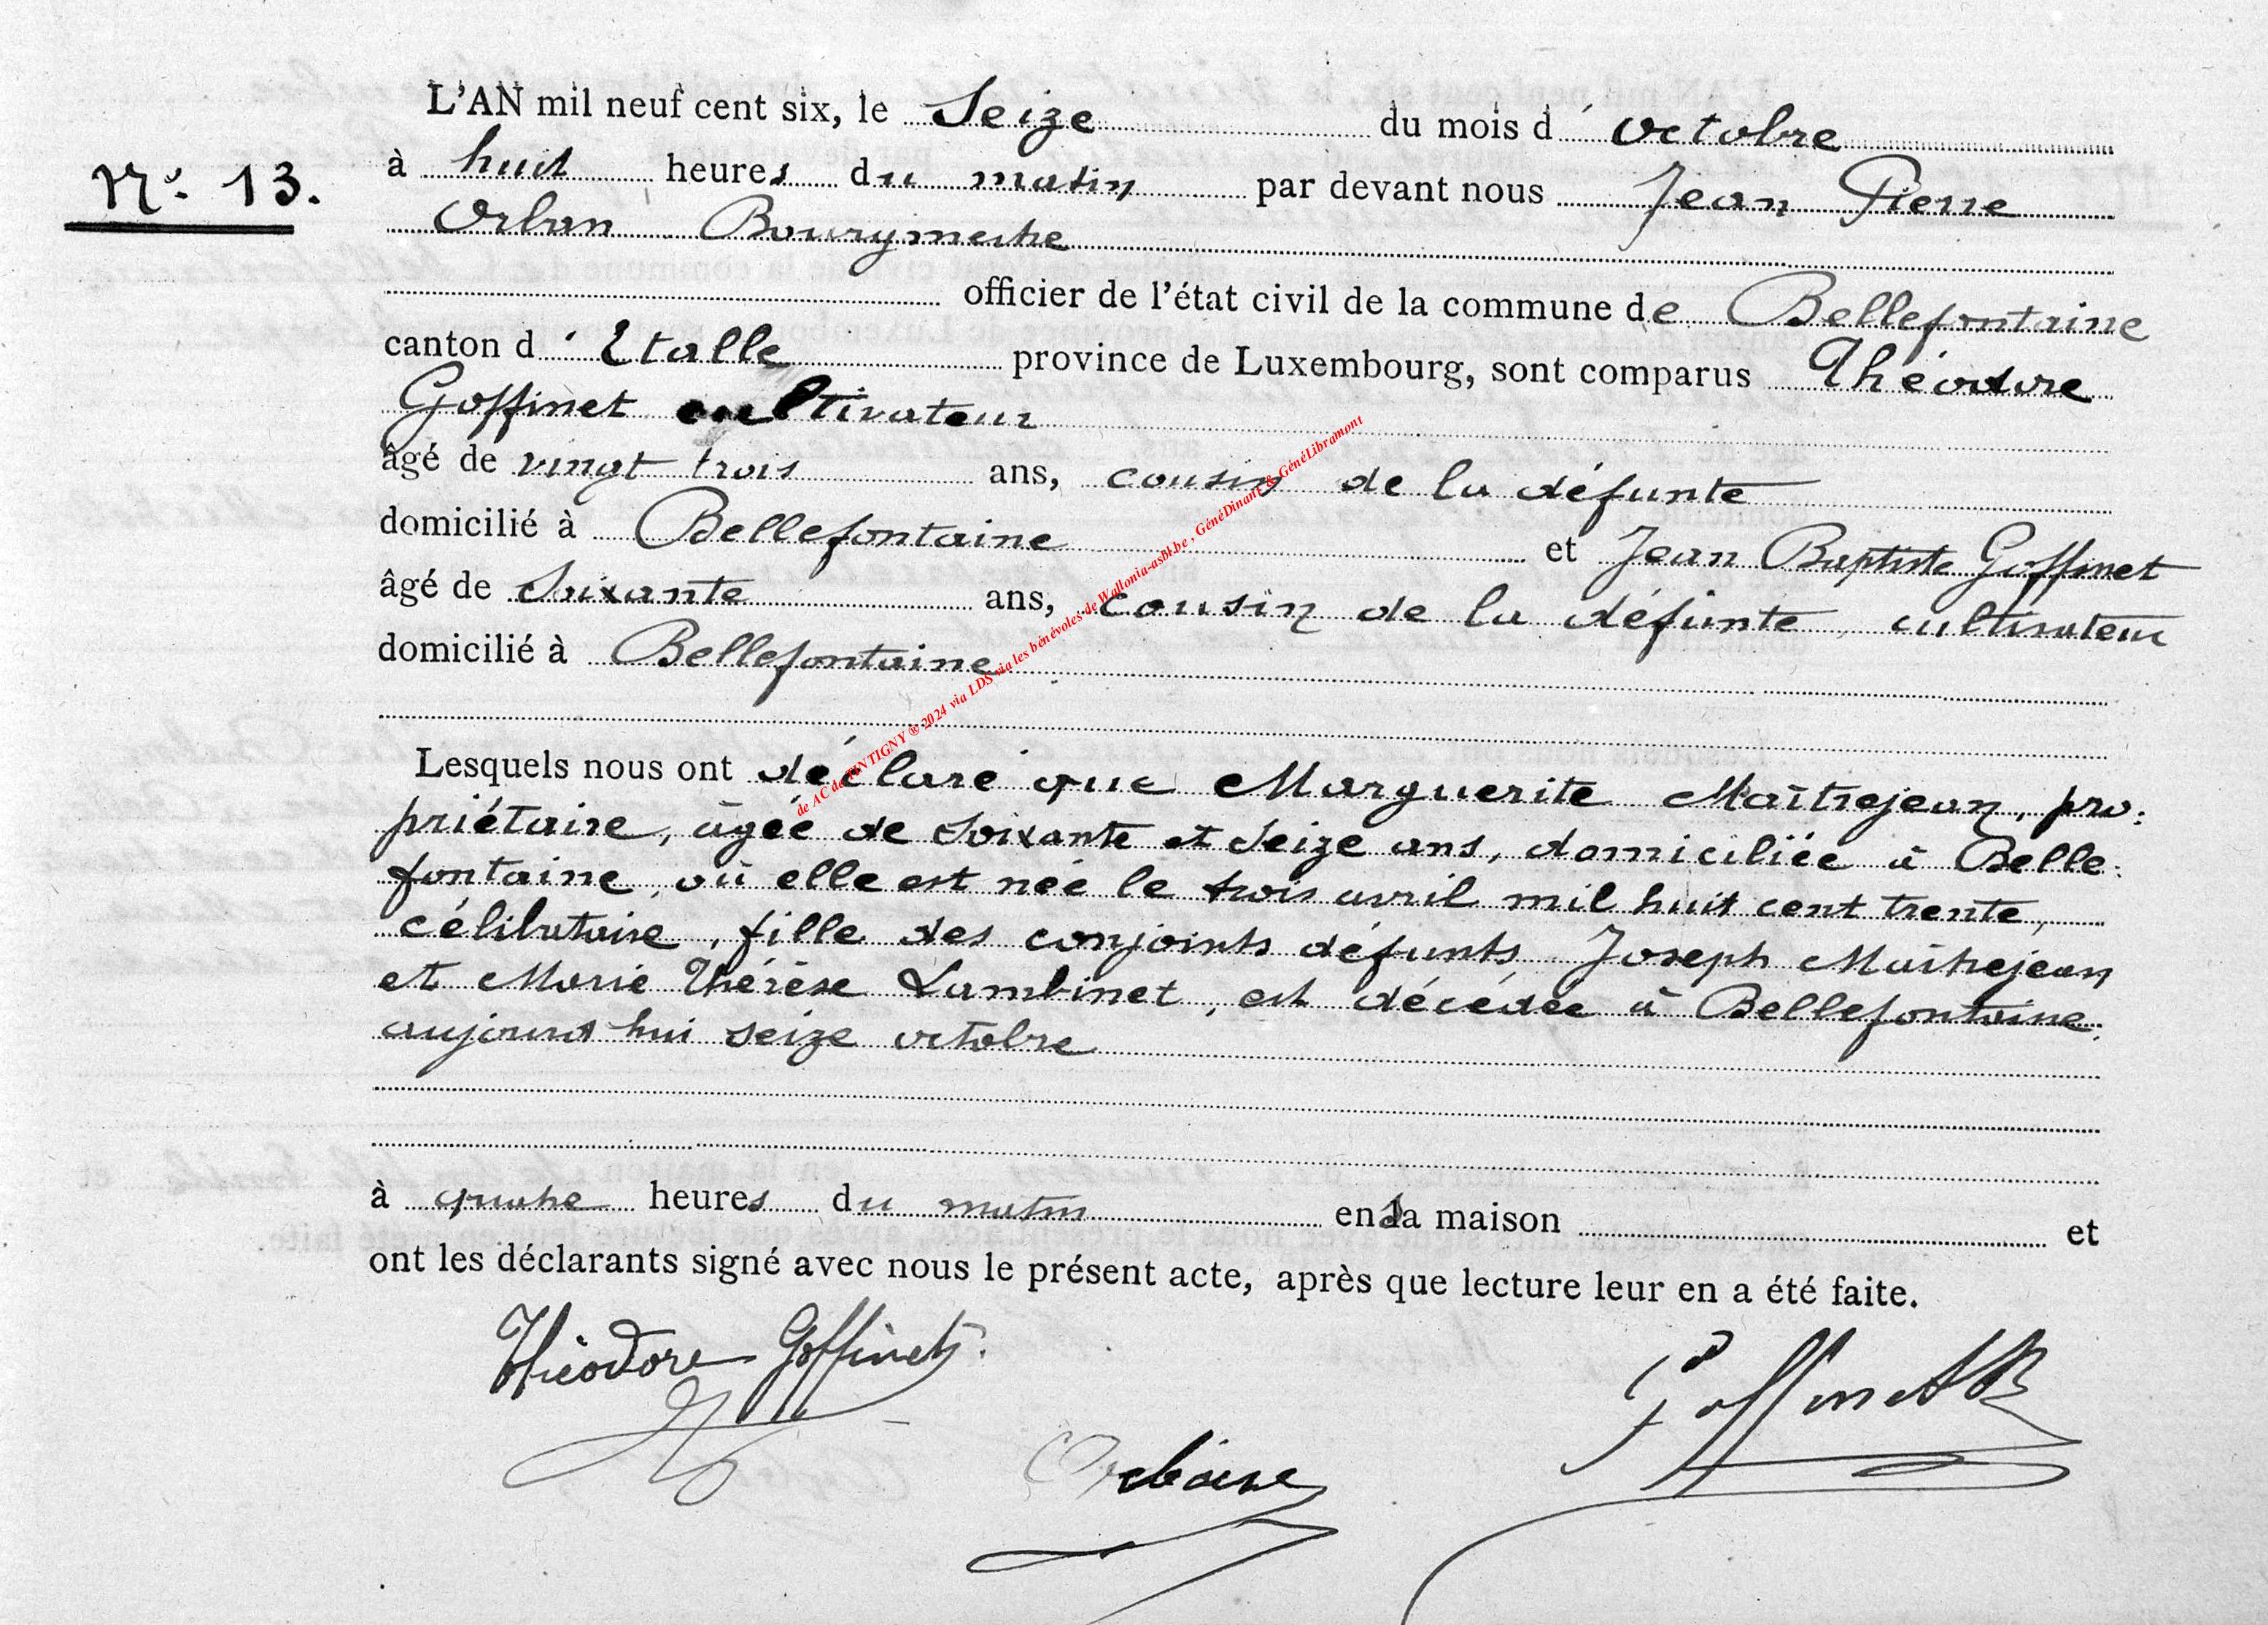 L'AN mil neuf cent six, le Seize du mois d' octobre
N° 13.
à huit heures du matin par devant nous Jean Pierre
Orban Bourgmestre
officier de l'état civil de la commune de Bellefontaine
canton d' Etalle province de Luxembourg, sont comparus Théodore
Goffinet cultivateur
âgé de vingt trois ans, cousin de la défunte
domicilié à Bellefontaine et Jean Baptiste Goffinet
âgé de Soixante ans, cousin de la défunte, cultivateur
domicilié à Bellefontaine
Lesquels nous ont déclaré que Marguerite Maîtrejean, pro:
priétaire, âgée de Soixante et Seize ans, domiciliée à Belle:
fontaine, où elle est née le trois avril mil huit cent trente,
célibataire, fille des conjoints défunts Joseph Maîtrejean
et Marie Thérèse Lambinet, est décédée à Bellefontaine:
aujourd'hui seize octobre
à quatre heures du matin en sa maison et
ont les déclarants signé avec nous le présent acte, après que lecture leur en a été faite.
Théodore Goffinet.
Goffinet JB
Orban
de AC de TINTIGNY ® 2024 via LDS via les bénévoles de Wallonia-asbl.be, GénéDinant & GénéLibramont